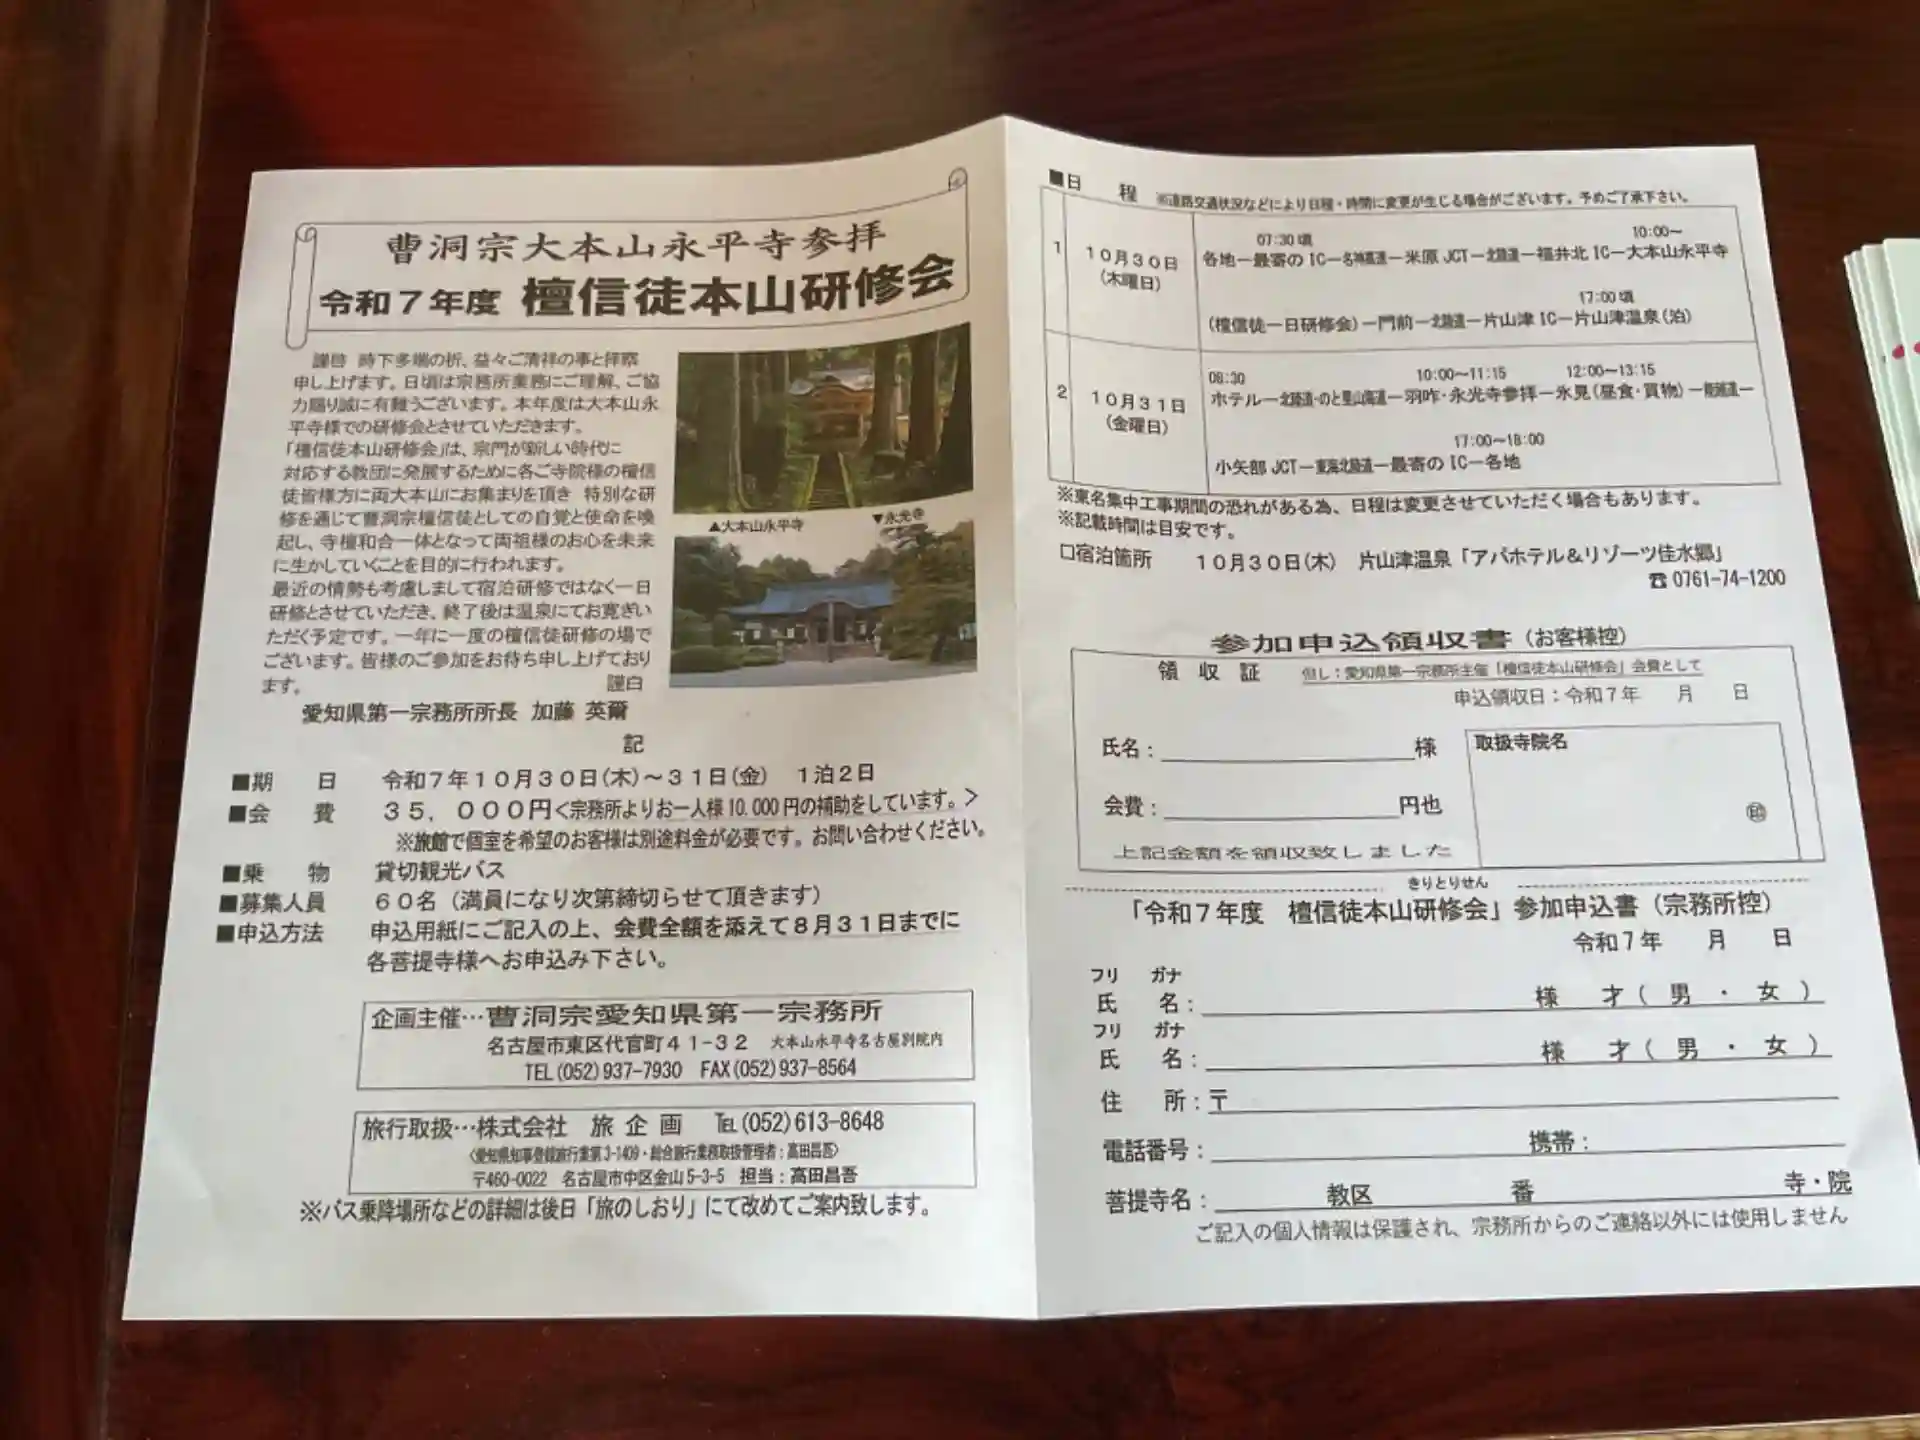 曹洞宗大本山永平寺参拝
令和7年度 檀信徒本山研修会
謹啓 時下多端の折、益々ご清祥の事と拝察
申し上げます。日頃は宗務所業務にご理解、ご協
力賜り誠に有難うございます。本年度は大本山永
平寺様での研修会とさせていただきます。
「檀信徒本山研修会」は、宗門が新しい時代に
対応する教団に発展するために各ご寺院様の檀信
徒皆様方に両大本山にお集まりを頂き 特別な研
修を通じて曹洞宗檀信徒としての自覚と使命を喚
起し、寺檀和合一体となって両祖様のお心を未来
に生かしていくことを目的に行われます。
最近の情勢も考慮しまして宿泊研修ではなく一日
研修とさせていただき、終了後は温泉にてお寛ぎい
ただく予定です。一年に一度の檀信徒研修の場で
ございます。皆様のご参加をお待ち申し上げており
ます。 謹白
▲大本山永平寺 ▼永光寺
愛知県第一宗務所所長 加藤 英爾
記
■期 日 令和7年10月30日(木)～31日(金) 1泊2日
■会 費 35,000円<宗務所よりお一人様10.000円の補助をしています。>
※旅館で個室を希望のお客様は別途料金が必要です。お問い合わせください。
■乗 物 貸切観光バス
■募集人員 60名(満員になり次第締切らせて頂きます)
■申込方法 申込用紙にご記入の上、会費全額を添えて8月31日までに
各菩提寺様へお申込み下さい。
企画主催…曹洞宗愛知県第一宗務所
名古屋市東区代官町41-32 大本山永平寺名古屋別院内
TEL(052)937-7930 FAX(052)937-8564
旅行取扱…株式会社 旅企画 TEL(052)613-8648
〈愛知県知事登録旅行業第3-1409・総合旅行業務取扱管理者：高田昌吾〉
〒460-0022 名古屋市中区金山5-3-5 担当：高田昌吾
※バス乗降場所などの詳細は後日「旅のしおり」にて改めてご案内致します。
■日 程 ※道路交通状況などにより日程・時間に変更が生じる場合がございます。予めご了承下さい。
1 10月30日 (木曜日)
07:30頃 10:00～
各地ー最寄のICー名神高速ー米原JCTー北陸道ー福井北ICー大本山永平寺
17:00頃
(檀信徒一日研修会)ー門前ー北陸道ー片山津ICー片山津温泉(泊)
2 10月31日 (金曜日)
08:30 10:00～11:15 12:00～13:15
ホテルー北陸道・のと里山海道ー羽咋・永光寺参拝ー氷見(昼食・買物)ー能越道ー
17:00～18:00
小矢部JCTー東海北陸道ー最寄のICー各地
※東名集中工事期間の恐れがある為、日程は変更させていただく場合もあります。
※記載時間は目安です。
□宿泊箇所 10月30日(木) 片山津温泉「アパホテル＆リゾーツ佳水郷」
☎0761-74-1200
参加申込領収書(お客様控)
領収証 但し：愛知県第一宗務所主催「檀信徒本山研修会」会費として
申込領収日：令和7年 月 日
氏名： 様 取扱寺院名
会費： 円也 ㊞
上記金額を領収致しました
きりとりせん
「令和7年度 檀信徒本山研修会」参加申込書(宗務所控)
令和7年 月 日
フリ ガナ
氏 名： 様 才( 男 ・ 女 )
フリ ガナ
氏 名： 様 才( 男 ・ 女 )
住 所：〒
電話番号： 携帯：
菩提寺名： 教区 番 寺・院
ご記入の個人情報は保護され、宗務所からのご連絡以外には使用しません